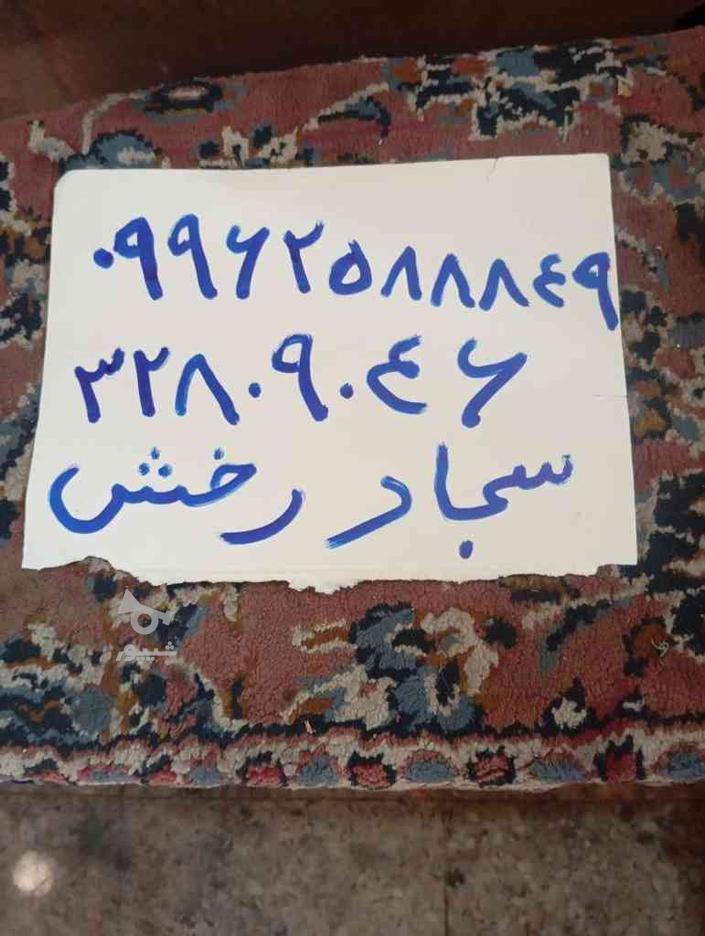 ۰۹۹۶۲۵۸۸۸٤۹
۳۲۸۰۹۰٤۶
سجاد رخش
شیپور